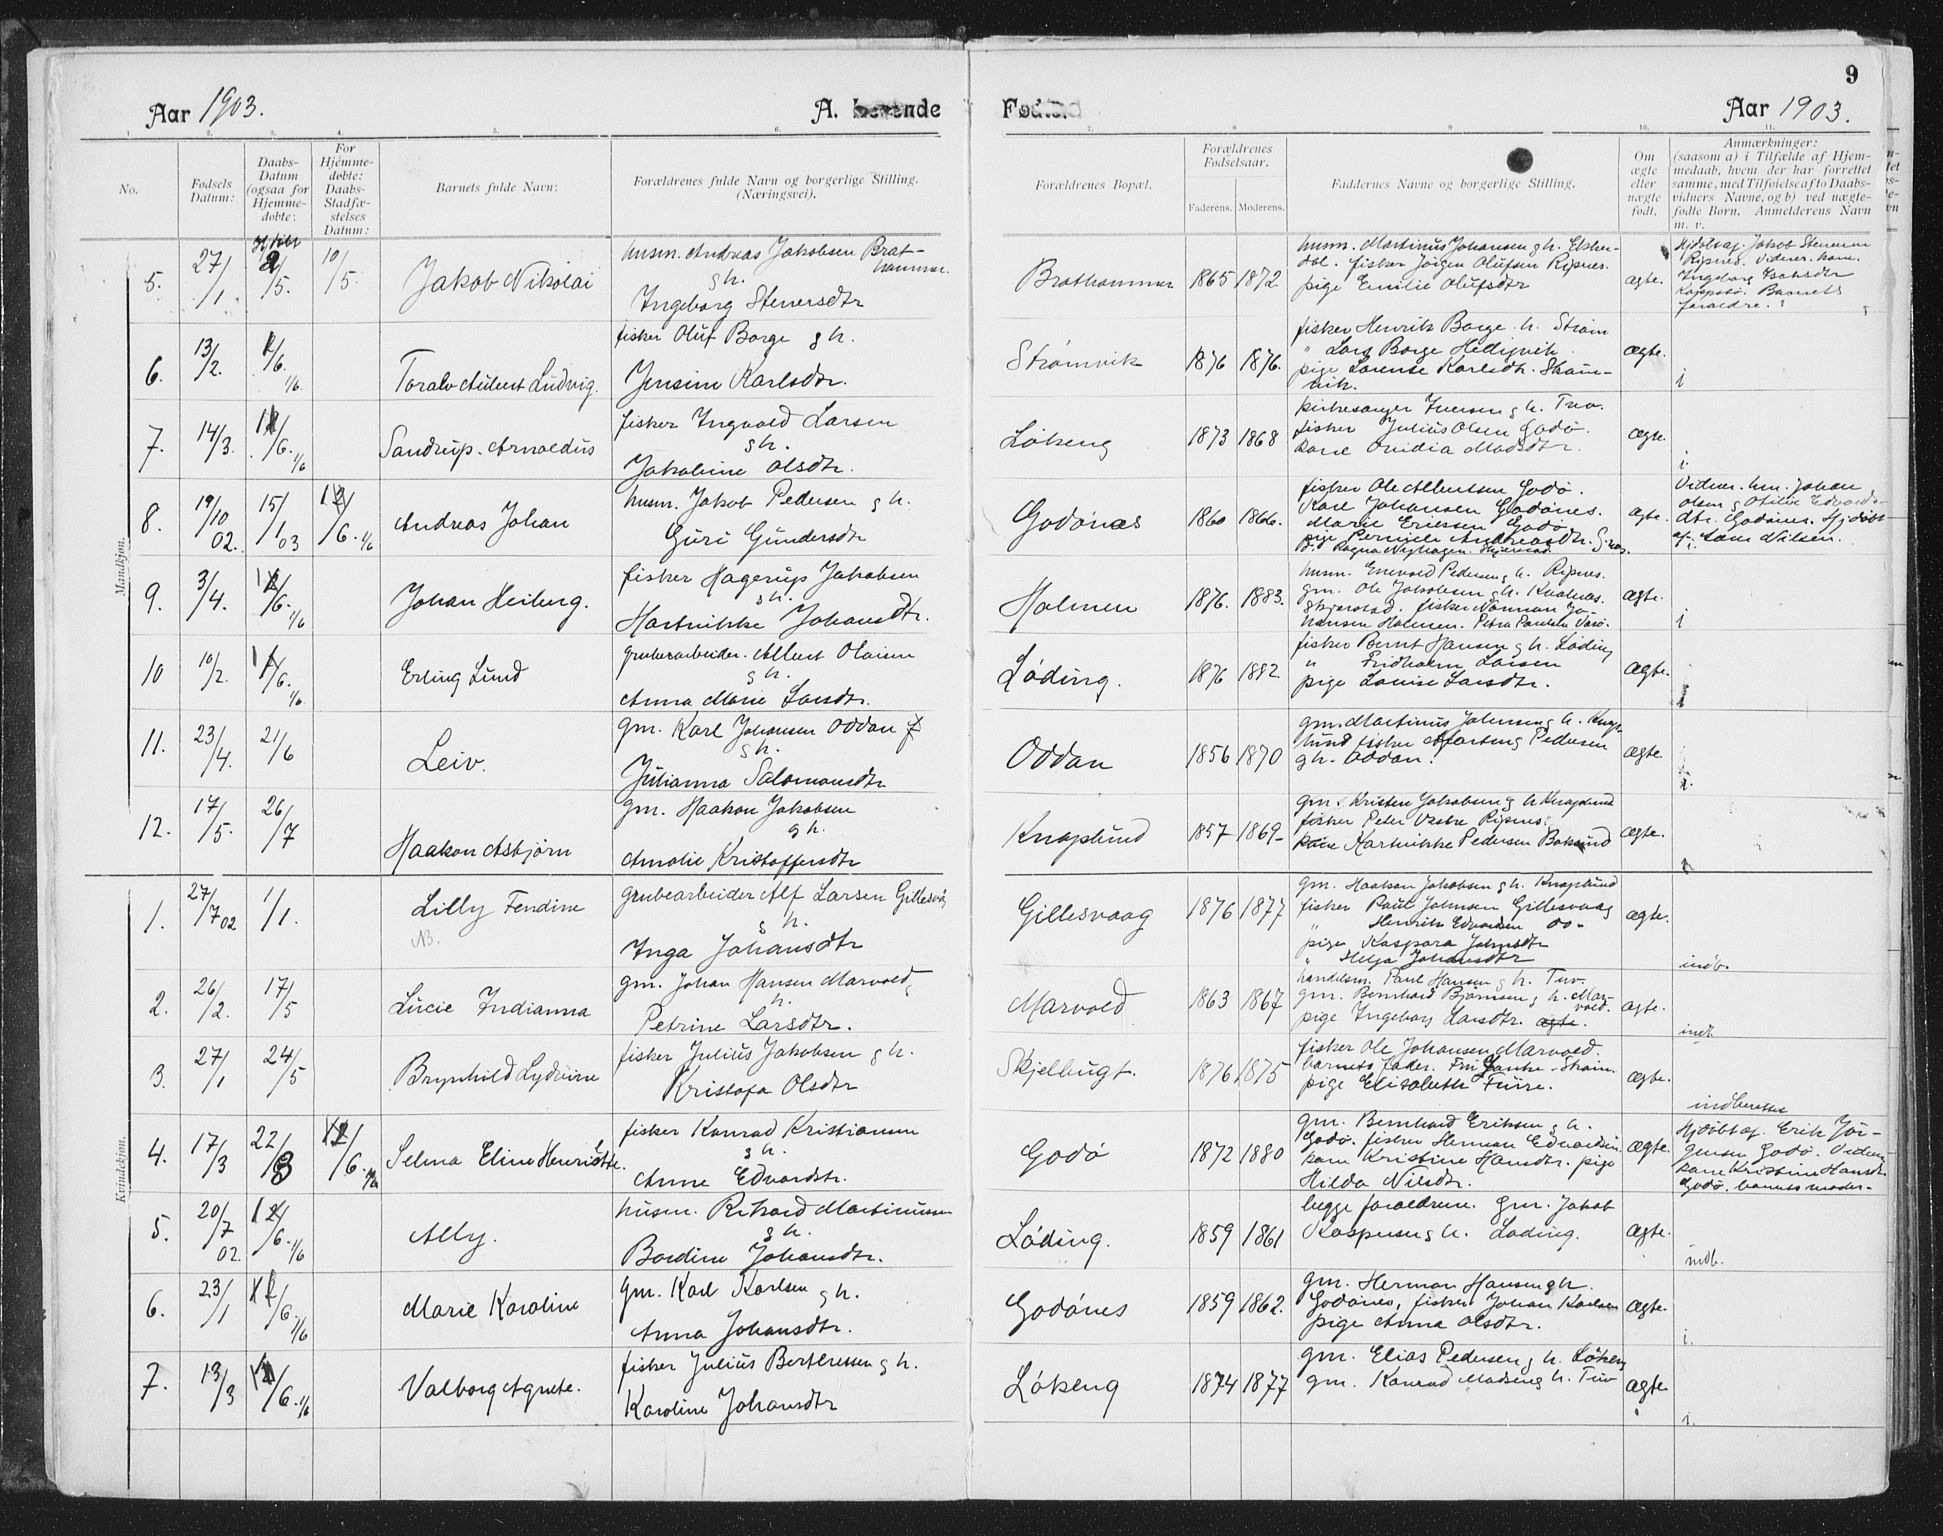 9
Aar 1903.
A. Levende
Fødte.
Aar 1903.
1.
2.
3.
4.
5.
6.
7.
8
9
10.
11.
No.
Fødsels Datum:
Daabs-Datum (ogsaa for Hjemme-døbte:
For Hjemme-døbte: Daabs-Stadfæ-stelses Datum:
Barnets fulde Navn:
Forældrenes fulde Navn og borgerlige Stilling. (Næringsvei).
Forældrenes Bopæl.
Forældrenes Fødselsaar.
Faderens.
Moderens.
Faddernes Navne og borgerlige Stilling.
Om ægte eller uægte født.
Anmærkninger: (saasom a) i Tilfælde af Hjem-medaab, hvem der har forrettet samme, med Tilføielse af to Daabs-vidners Navne, og b) ved uægte-fødte Børn. Anmelderens Navn m. v.
Mandkjøn.
5. 27/1. 2/5. 10/5. Jakob Nikolai
husm. Andreas Jakobsen Brat-
hammer.
g h.
Ingeborg Stenersdtr
Brathammer 1865 1872
husm. Martinus Johansen g h.
fisker Jörgen Olufsen Ripnes.
pige Emilie Olufsdtr
ægte.
Hjdøbt af. Jakob Stenersen
Ripnes. Vidner. kone.
Ingeborg Isaksdtr
Koppstø. Barnets
foraldre.
6. 13/2. 1/6. 1/6. Toralv Aulbert Ludvig.
fisker Oluf Borge g h.
Jensine Karlsdtr.
Strømvik 1876 1876.
fisker Henrik Borge. h. Strøm
" Lars Borge
pige Lorense Karlsdtr. Strøm-
vik.
ægte.
i
7. 14/3. 1/6. 1/6 Sandrup. Arnoldus
fisker Ingvald Larsen
g h.
Jakobine Olsdtr.
Løkeng 1873 1868
kirkesanger Iversen g h. Tuv.
fisker Julius Olsen Godø.
kone Ovidia Madsdtr.
ægte.
i
8. 19/10 02. 15/1 03 1/6. 1/6 Andreas Johan
husm. Jakob Pedersen g h.
Guri Gundersdtr
Godønes 1860 1866.
fisker Ole Albertsen Godø.
Karl Johansen Godønes.
Marie Eriksen Godø
pige Pernille Andreasdtr.
ægte.
Vidner. hm. Johan
Olsen g Otilie Edvards-
dtr. Godønes. Hjdøbt
af. Lars Nilsen.
i.
9. 3/4. 1/6. 1/6 Johan Heiberg.
fisker Hagerup Jakobsen
g h.
Hartvikke Johansdtr.
Holmen 1876. 1883.
husm. Enevold Pedersen g h. Ripnes.
gm. Ole Jakobsen g h.
Skjerstad. fisker Norman Jo-
hansen Holmen. Petra Paulsen
ægte.
i
10 10/2. 1/6. 1/6 Erling Lund
grubearbeider. Albert Olaisen
g h.
Anna Marie Larsdtr.
Løding. 1876 1882.
fisker Bernt Hansen g h. Løding
" Fridholm Larsen
pige Louise Larsdtr.
ægte.
i
11. 23/4. 21/6 Leiv.
gm. Karl Johansen Oddan
g h.
Julianna Salomonsdtr
Oddan 1856 1870
gm. Martinus Johnsen g h. Knap-
lund fisker Morten g Pedersen
g h. Oddan.
ægte.
i.
12. 17/5. 26/7 Haakon Asbjørn
gm. Haakon Jakobsen
g h.
Amalie Kristoffersdtr
Knaplund 1857 1869
gm. Kristen Jakobsen g h Knaplund
fisker Peter Ripnes.
kone Hartvikke Pedersen
ægte.
Kvindekjøn.
1. 27/7 02 1/1. Lilly Fendine
NB.
grubearbeider Alf Larsen Gillesvåg
g h.
Inga Johansdtr
Gillesvaag 1876 1877
gm. Haakon Jakobsen g h. Knaplund
fisker Paul Johnsen Gillesvaag
" Henrik Edvardsen do-
pige Kaspara Johnsdtr
" Helga Johansdtr
ægte.
indb.
2. 26/2. 17/5 Lucie Indianna
gm. Johan Hansen Marvold
g h.
Petrine Larsdtr.
Marvold 1863 1867
handelsm. Paul Hansen g h. Tuv.
gm. Bernhard Bjørnsen g h. Mar-
vold.
pige Ingeborg Larsdtr. ægte.
ægte.
indb
3. 27/1 24/5 Brynhild Lydvine
fisker Julius Jakobsen g h.
Kristofa Olsdtr
Skjelbugt. 1876 1875
fisker Ole Johansen Marvold.
barnets fader. Fru Strøm.
pige Elisabeth Furre.
ægte.
indberettet
4. 17/3 22/3 1/6. Selma Eline Henriette.
fisker Konrad Kristiansen
g h.
Anne Edvardstr.
Godø 1872 1880
gm. Bernhard Eriksen g h.
Godø. fisker Herman Edvardsen
kone Kristine Hansdtr. pige
Hilda Nilsdtr.
ægte.
Hjdøbt af. Erik Jør-
gensen Godø. Vidner
kone Kristine Hansdtr
Godø. barnets moder.
5. 20/7 02 1/6. 1/6 Ally.
husm. Rikard Martinussen
g h.
Bordine Johansdtr.
Løding. 1859 1861
begge foraldrene. Gm. Jakob
Kaspersen g h. Løding.
ægte.
indb.
6. 23/1 1/6. 1/6 Marie Karoline
gm. Karl Karlsen g h.
Anna Johansdtr.
Godønes 1859 1862.
gm. Herman Hansen g h
Godønes, fisker Johan Karlsen
pige Anna Olsdtr.
ægte.
i.
7. 13/3 1/6. 1/6 Valborg Agnete.
fisker Julius Berthessen g h.
Karoline Johansdtr
Løkeng 1874 1877
gm. Elias Pedersen g h. Løkeng
gm. Konrad Madsen g h. Tuv
ægte
i.